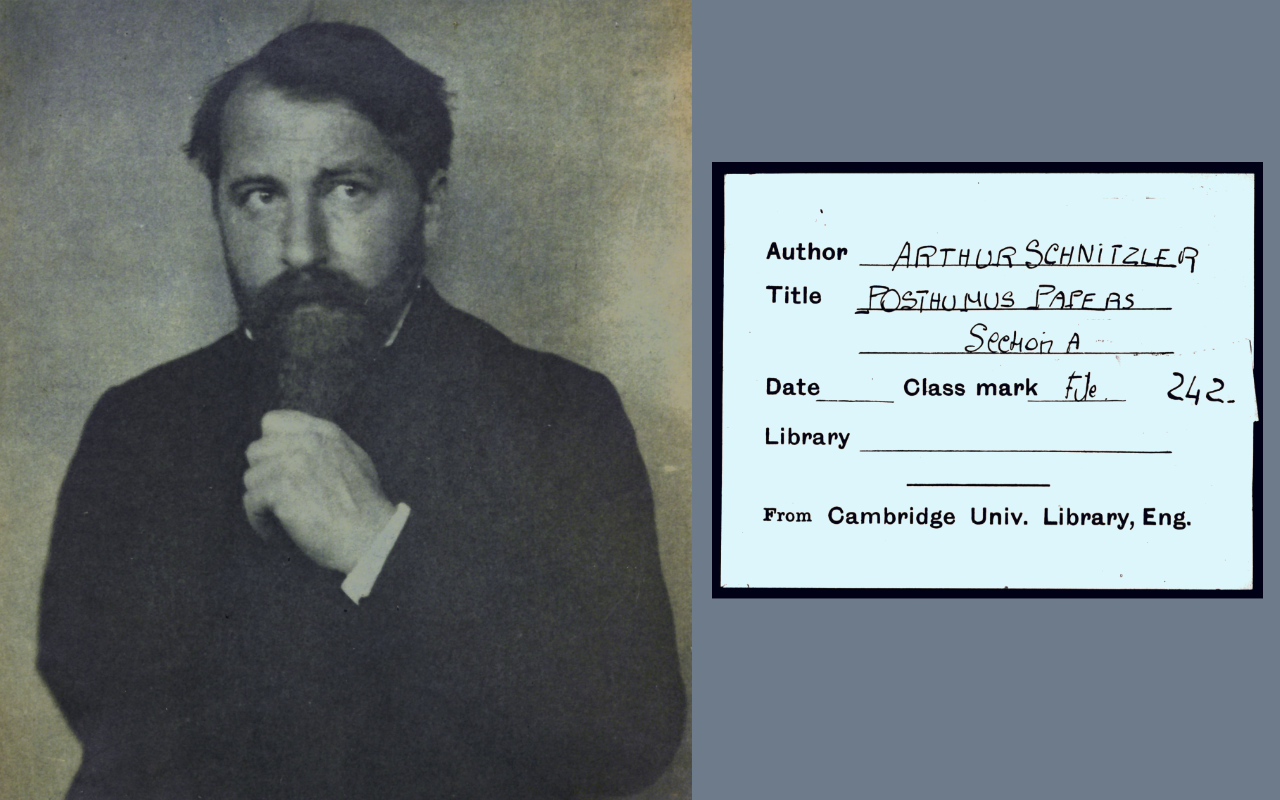 Author ARTHUR SCHNITZLER
Title POSTHUMUS PAPERS
Section A
Date Class mark File 242-
Library
From Cambridge Univ. Library, Eng.